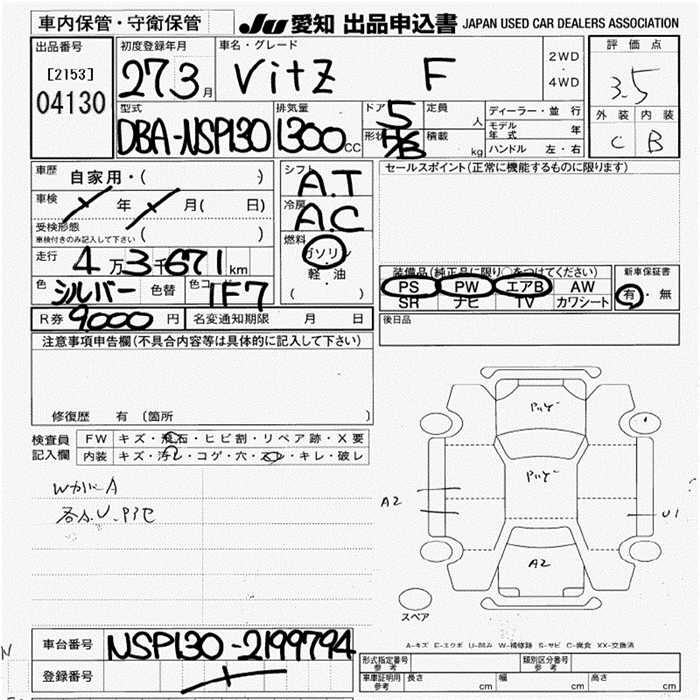 車内保管・守衛保管
JU 愛知 出品申込書 JAPAN USED CAR DEALERS ASSOCIATION
出品番号
[2153]
04130
初度登録年月
27 3 月
車名・グレード
Vitz F
2WD
・
4WD
評価点
3.5
型式
DBA-NSP130
排気量
1300 CC
ドア
5
形状
H/B
定員
人
積載
kg
ディーラー・並 行
モデル年式 年
ハンドル 左・右
外装 内装
C B
車歴
自家用・( )
車検
年 月( 日)
受検形態
車検付きのみ記入して下さい ( )
走行
4万3千671 km
色
シルバー
色替
色コ
1F7
シフト
A.T
冷房
A.C
燃料
ガソリン
・
軽・油
( )
セールスポイント(正常に機能するものに限ります)
装備品(純正品に限り○をつけてください)
PS PW エアB AW
SR ナビ TV カワシート
新車保証書
有・無
R券 9,000 円
名変通知期限 月 日
後日品
注意事項申告欄(不具合内容等は具体的に記入して下さい)
修復歴 有 (箇所 )
検査員
記入欄
FW キズ・飛石・ヒビ割・リペア跡・X要
内装 キズ・汚レ・コゲ・穴・スレ・キレ・破レ
A2
U1
A2
スペア
A-キズ E-エクボ U-凹み W-補修跡 S-サビ C-腐食 XX-交換済
車台番号 NSP130-2199794
登録番号
形式指定番号
参考
類別区分番号
参考
車庫証明用
参考
長さ cm 幅 cm 高さ cm